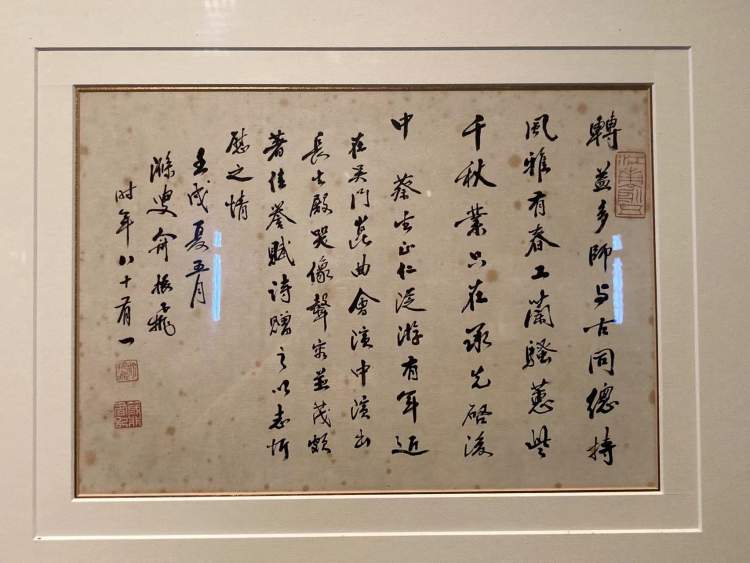 轉益多師与古同總持
風雅有春工蘭騷蕙些
千秋業只在承先啓後
中 蔡生正仁從游有年近
在吳門崑曲會演中演出
長生殿哭像聲容並茂頗
著佳譽賦詩贈之以志忻
慰之情
壬戌夏五月
滌叟俞振飛
时年八十有一